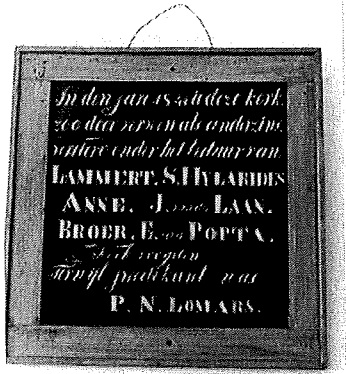 In den jaar 18 is deze kerk
zoo door verwen als andezins
onder het bestuur van
LAMMERT. S. HYLARIDES
ANNE. J. LAAN.
BROER. E. van POPTA.
Kerkvoogden
Terwyl predikant was
P. N. LOMARS.